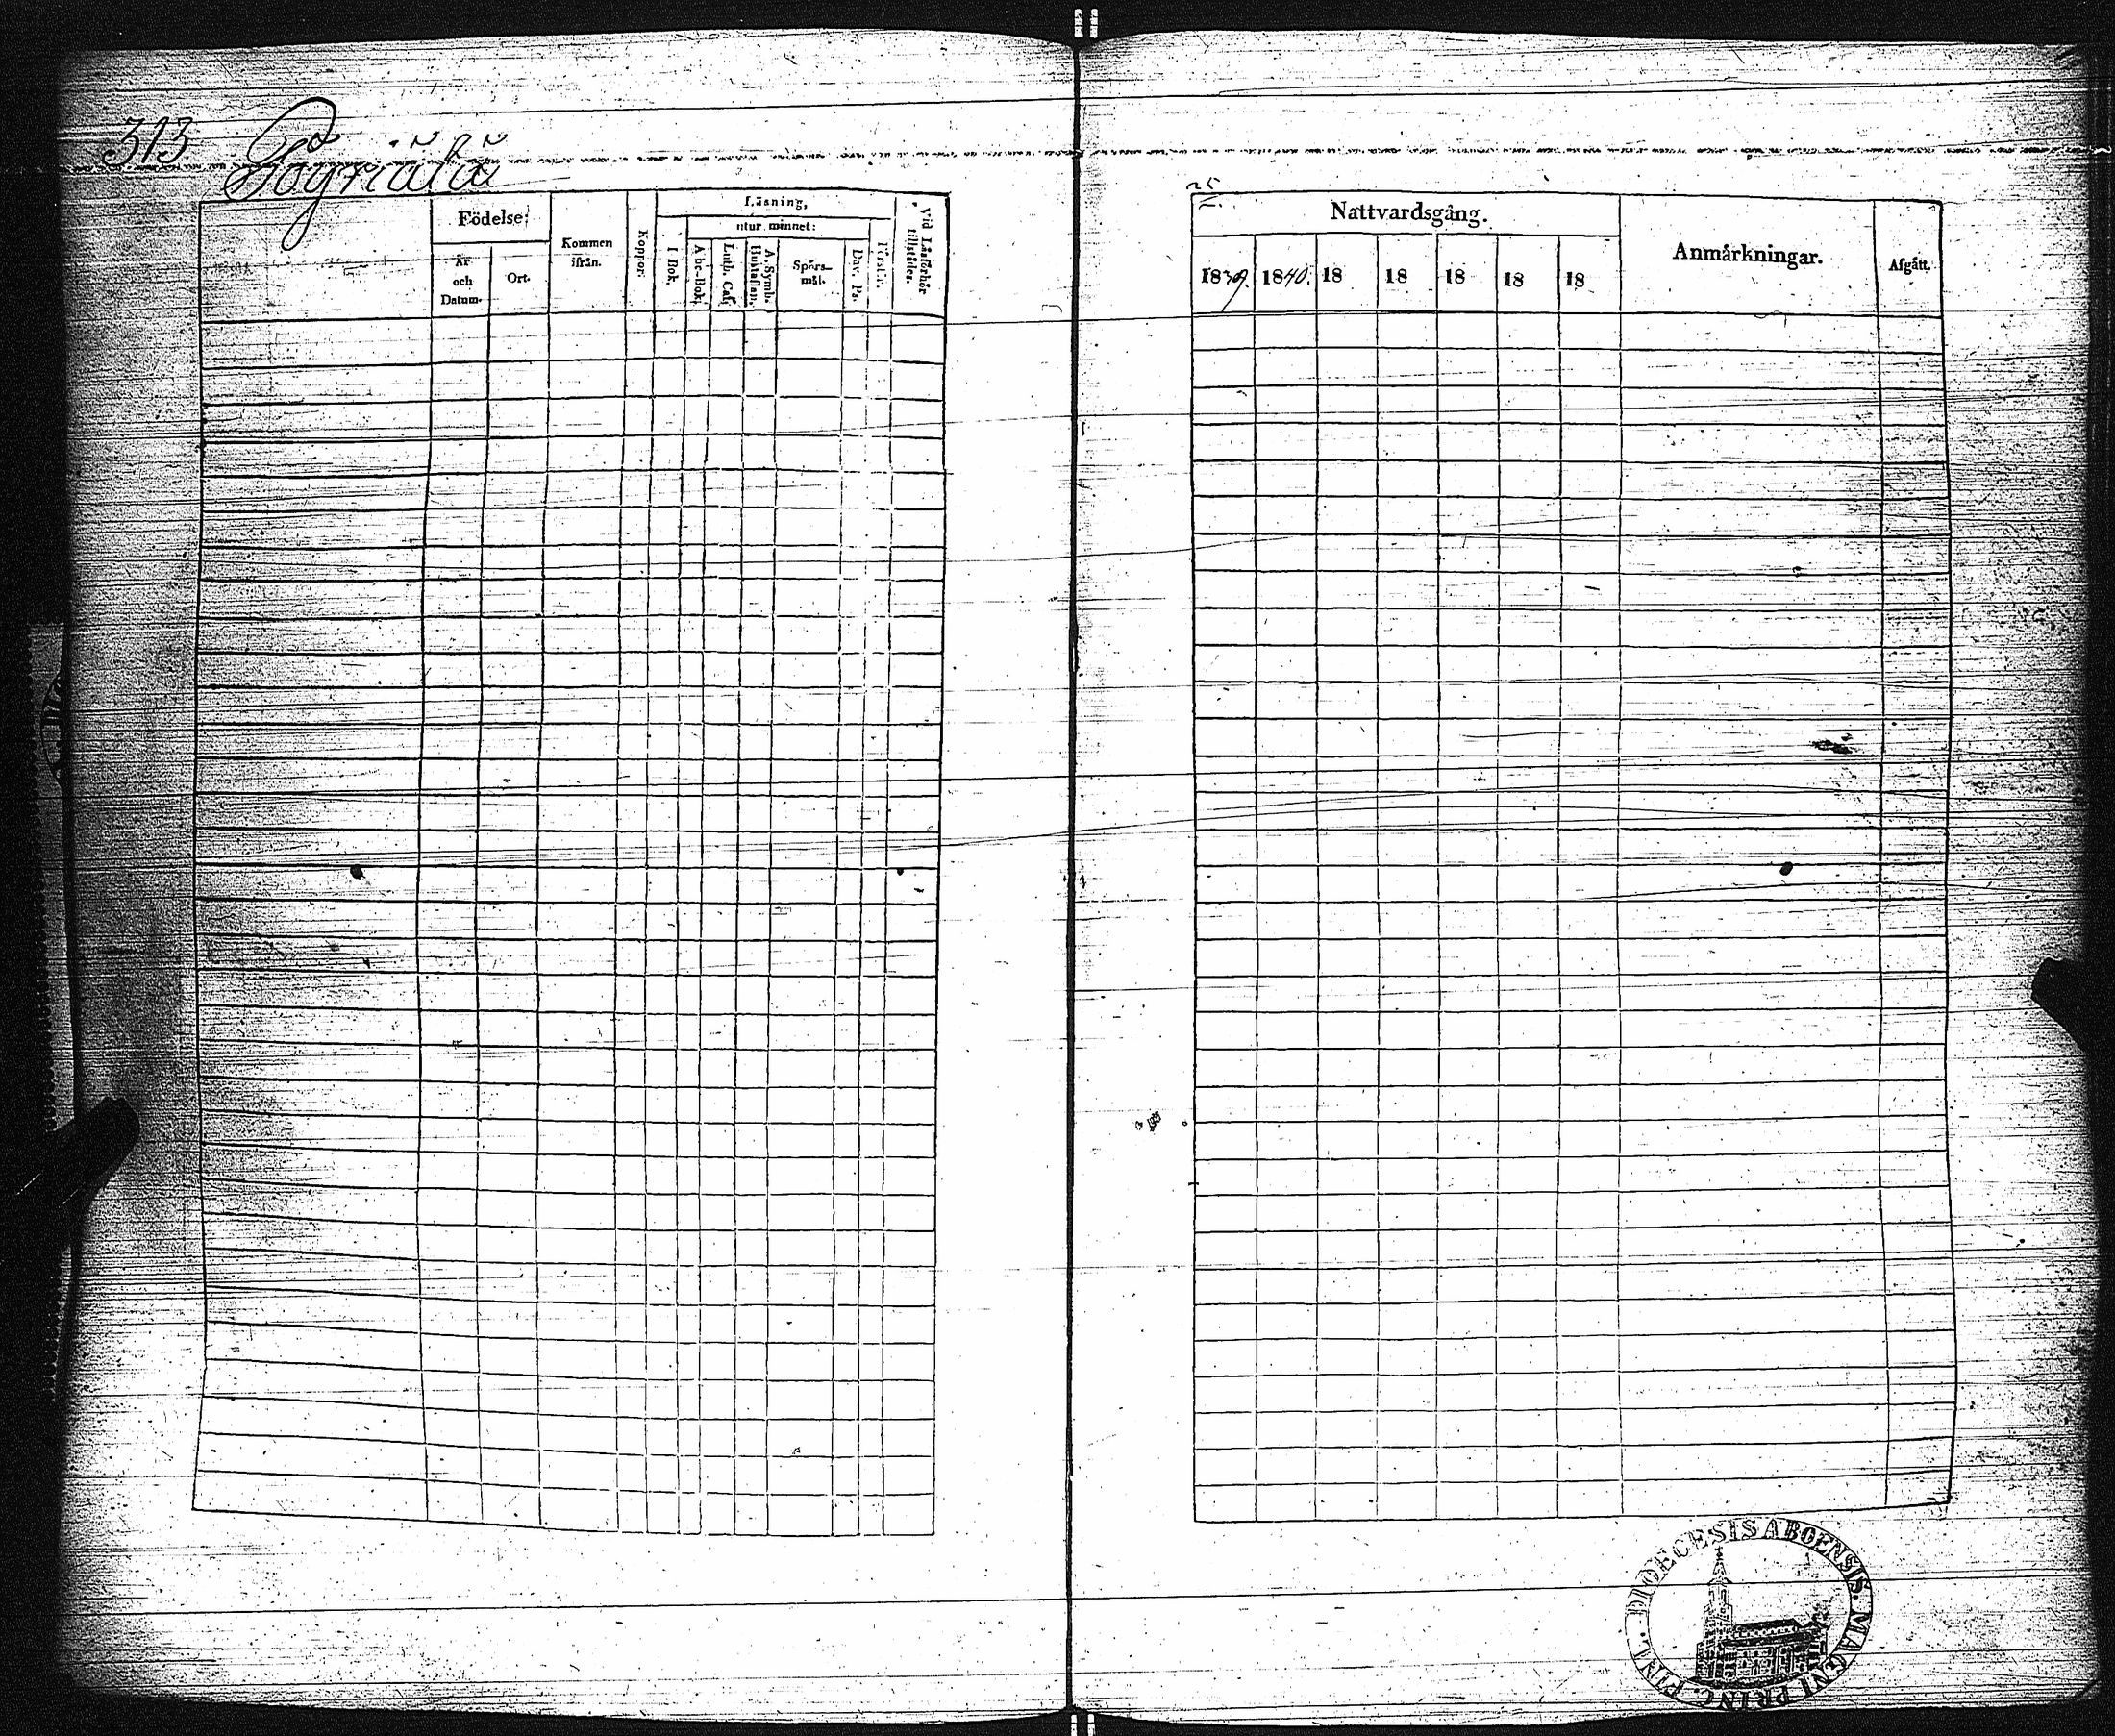 313 Pöyriälä
Födelse:
År
och
Datum.
Ort.
Kommen
ifrån.
Koppor.
Läsning,
utur minnet:
I Bok.
Abc-Bok.
Luth. Cat.
A. Symb.
Hustaflan.
Spörs-
mål.
Dav. Ps.
Först:r.
Vid Läsförhör
tillstädes.
25
Nattvardsgång.
1839. 1840. 18 18 18 18 18
Anmärkningar.
Afgått.
DIOECESIS ABOENSIS. MAGNI PRINC. FINL.